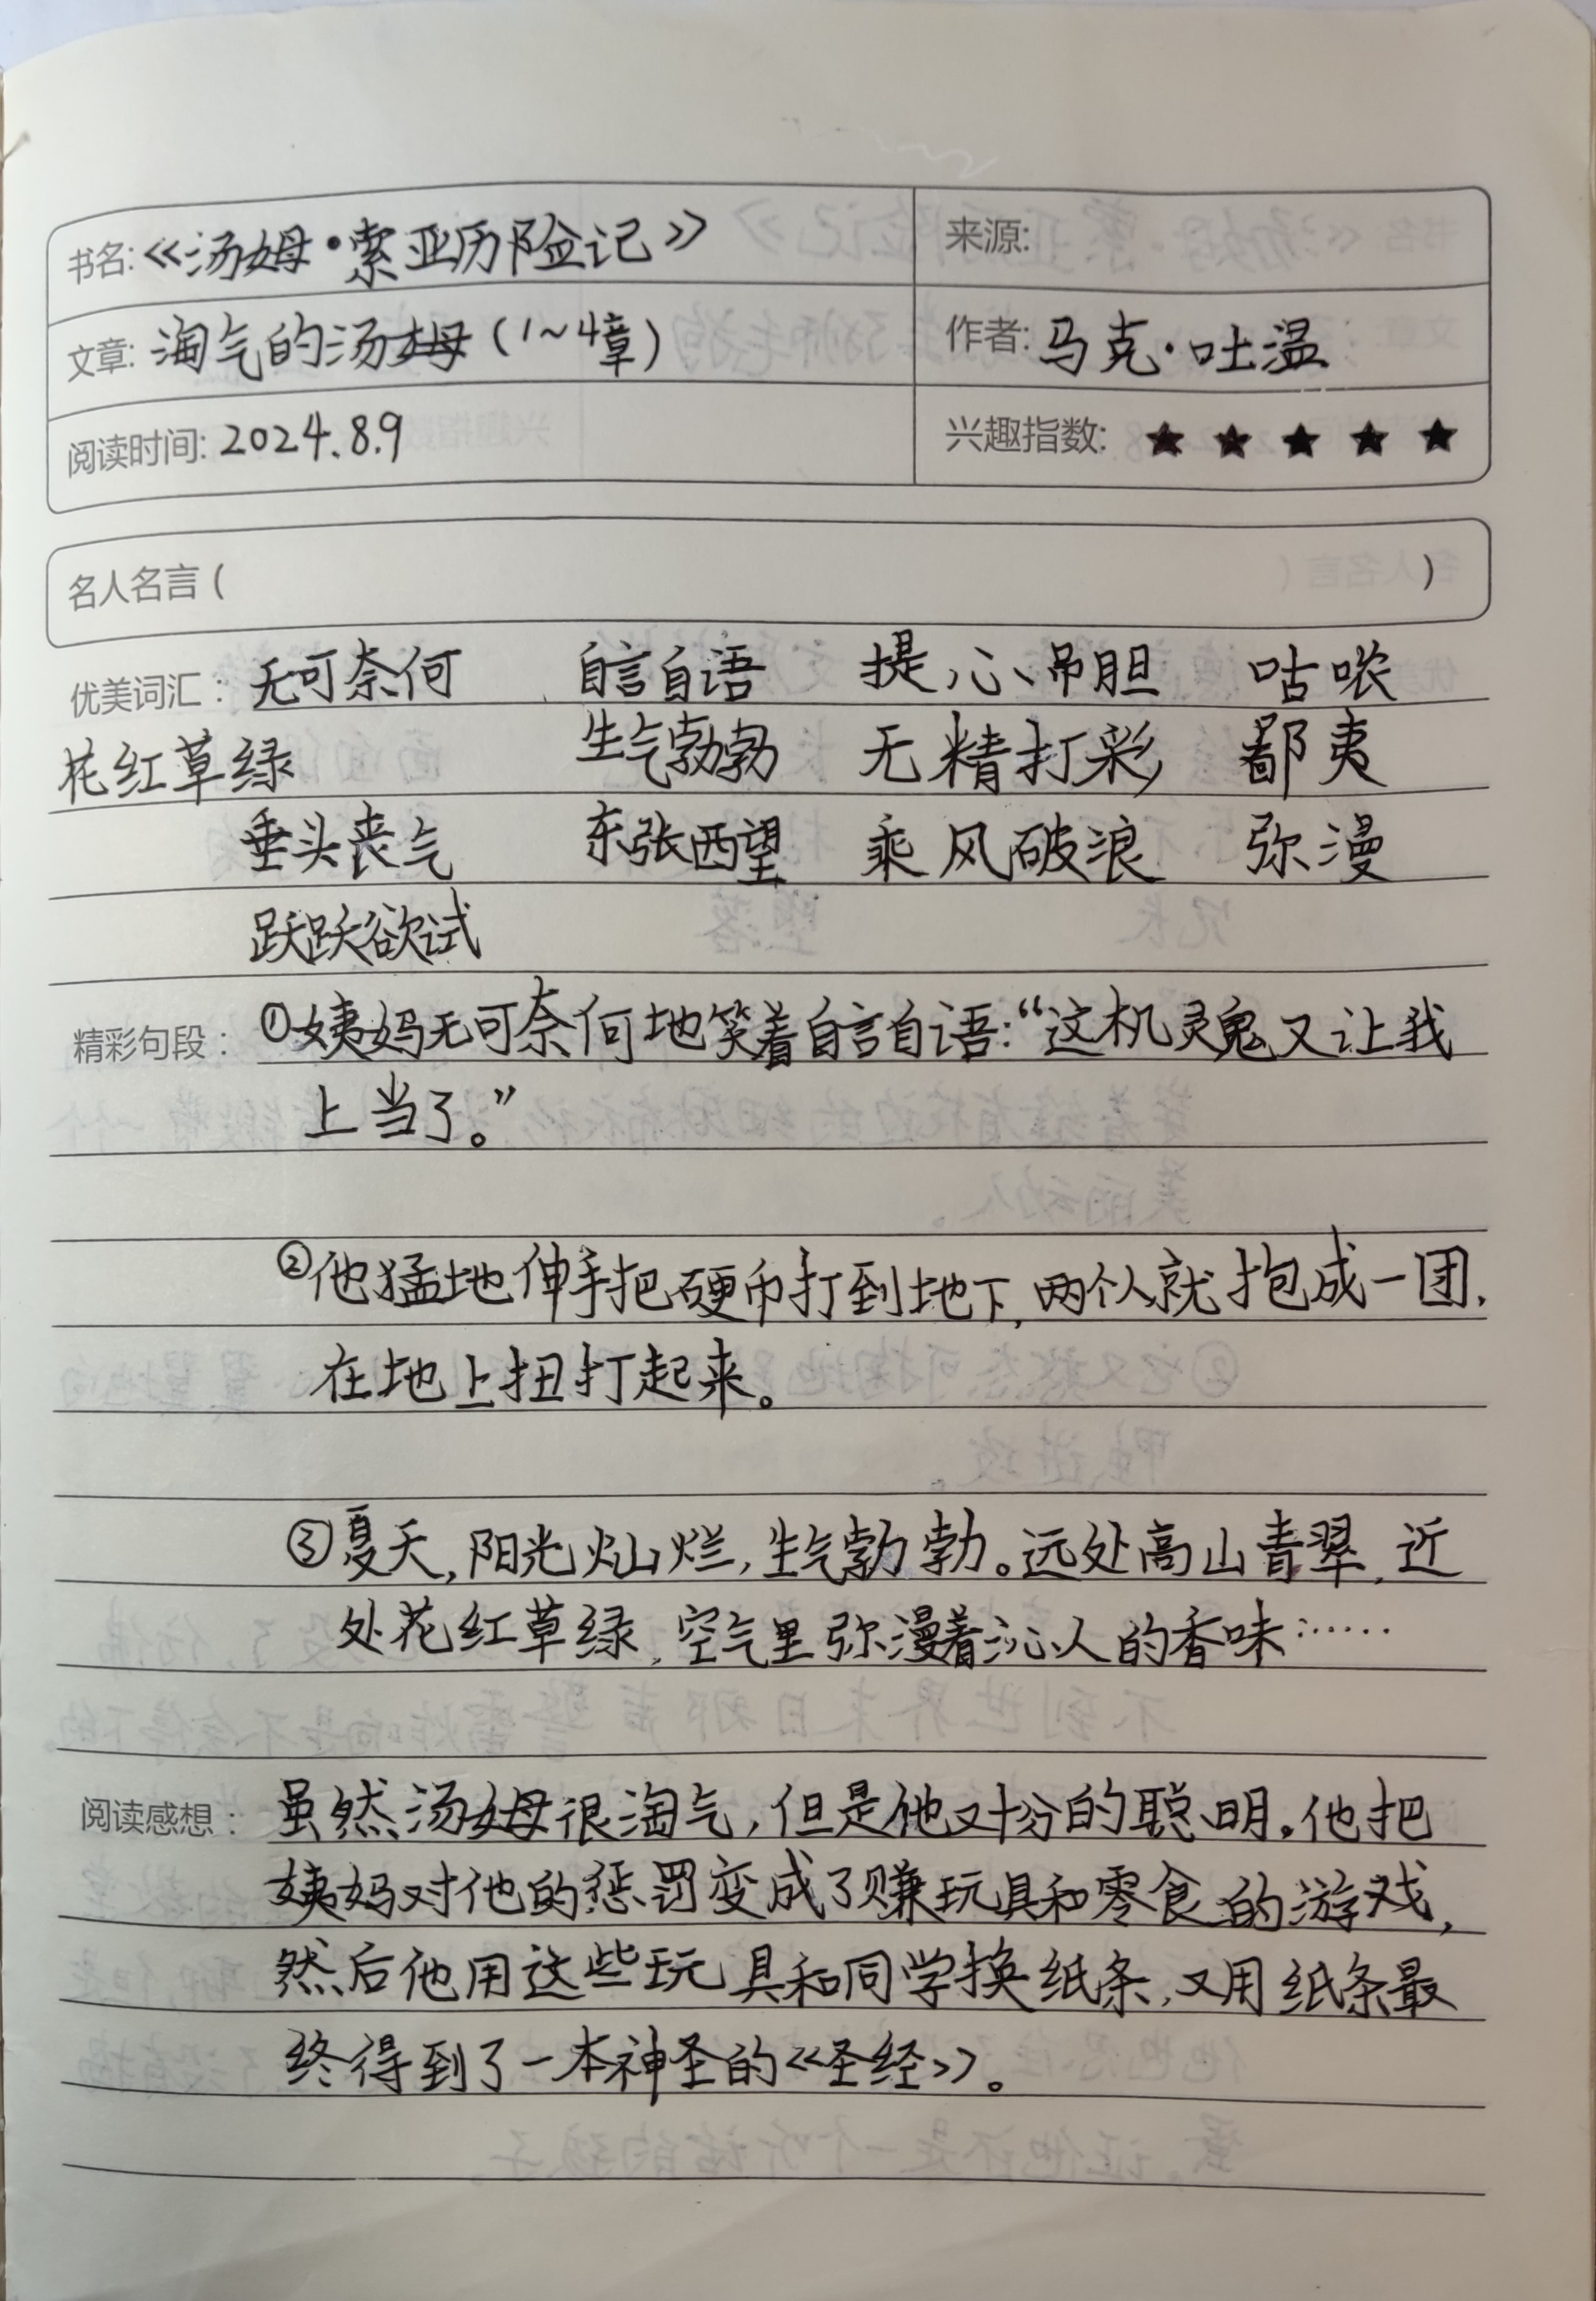 书名:《汤姆·索亚历险记》 来源:
文章: 淘气的汤姆(1~4章) 作者: 马克·吐温
阅读时间: 2024.8.9 兴趣指数: ★ ★ ★ ★ ★
名人名言( )
优美词汇: 无可奈何 自言自语 提心吊胆 咕哝
花红草绿 生气勃勃 无精打彩 鄙夷
垂头丧气 东张西望 乘风破浪 弥漫
跃跃欲试
精彩句段: ①姨妈无可奈何地笑着自言自语:“这机灵鬼又让我
上当了。”
②他猛地伸手把硬币打到地下,两个人就抱成一团,
在地上扭打起来。
③夏天,阳光灿烂,生气勃勃。远处高山青翠,近
处花红草绿,空气里弥漫着沁人的香味……
阅读感想: 虽然汤姆很淘气,但是他又十分的聪明。他把
姨妈对他的惩罚变成了赚玩具和零食的游戏,
然后他用这些玩具和同学换纸条,又用纸条最
终得到了一本神圣的《圣经》。